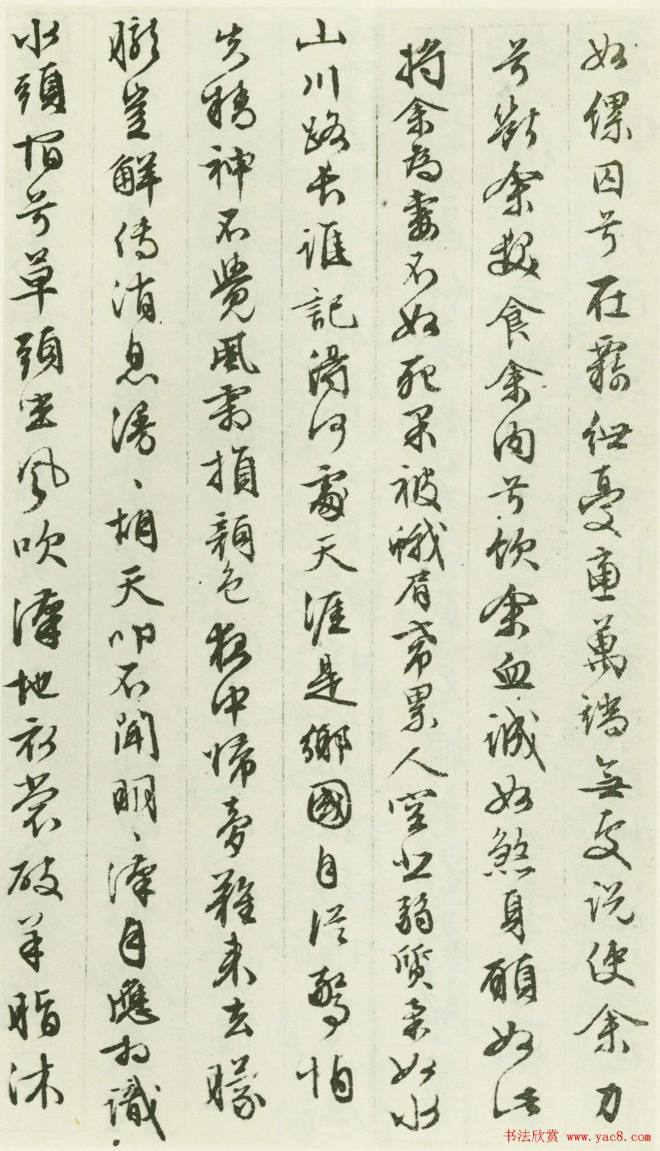 如傫囚兮在覊紲憂慮萬端無處説使余刀
兮斷余髮食余肉兮飲余血誠如煞身願如此
將余為妻不如死早被蛾眉累人空悲弱質柔如水
山川路長誰記得何處天涯是鄉國自從驚怕
失精神不覺風霜損顏色夜中歸夢難來去朦
朧豈解傳消息漫〻胡天叫不聞明〻漢月應相識
水頭宿兮草頭坐風吹漢地衣裳破羊脂沐
书法欣赏 www.yac8.com